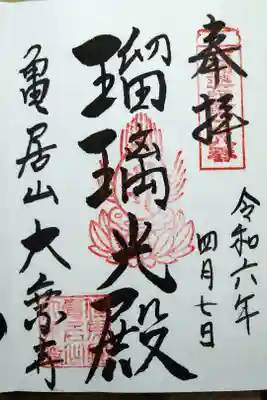 奉拝
令和六年
四月七日
瑠璃光殿
亀居山大象寺